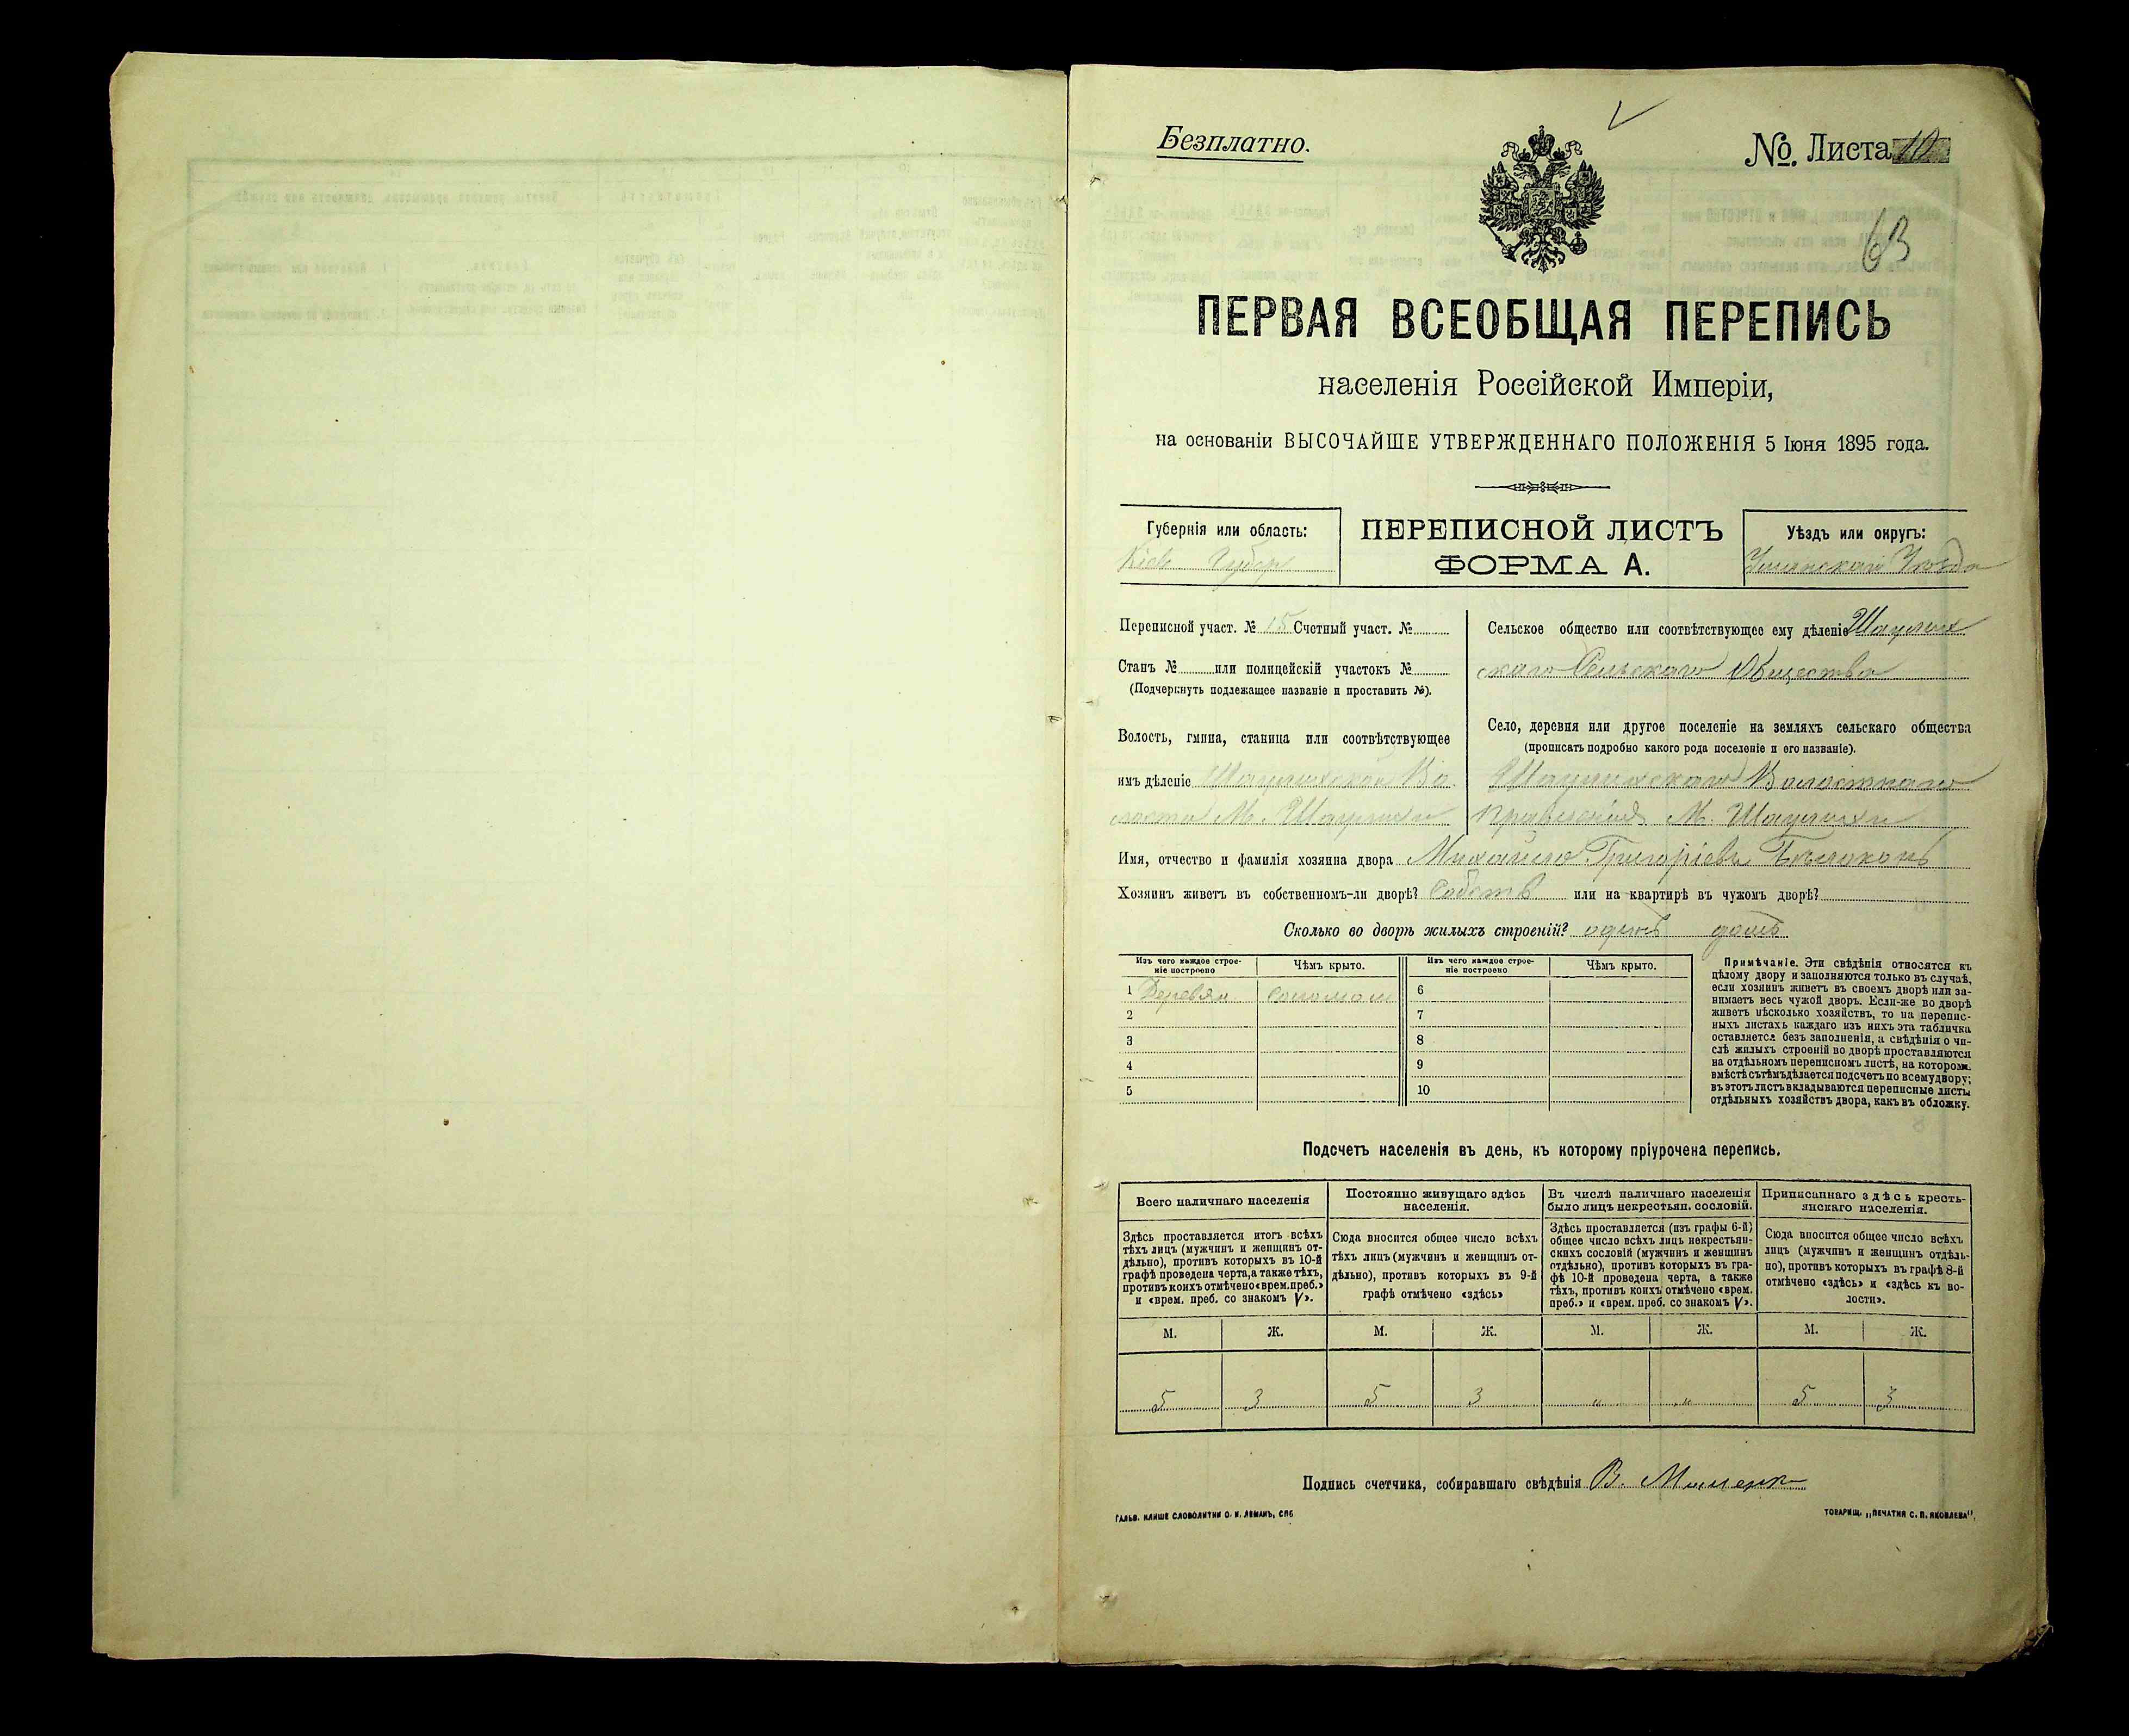 Безплатно.
№. Листа 10
63
ПЕРВАЯ ВСЕОБЩАЯ ПЕРЕПИСЬ
населенія Россійской Имперіи,
на основаніи ВЫСОЧАЙШЕ УТВЕРЖДЕННАГО ПОЛОЖЕНІЯ 5 Іюня 1895 года.
Губернія или область:
Кіев Губер
ПЕРЕПИСНОЙ ЛИСТЪ
ФОРМА А.
Уѣздъ или округъ:
Уманскаго Уѣзда
Переписной участ. № 15 Счетный участ. №
Станъ № или полицейскій участокъ №
(Подчеркнуть подлежащее названіе и проставить №).
Волость, гмина, станица или соотвѣтствующее
имъ дѣленіе Шаулихской Во
лости М. Шаулихи
Сельское общество или соотвѣтствующее ему дѣленіе Шаулих
скаго Сельскаго Общества
Село, деревня или другое поселеніе на земляхъ сельскаго общества
(прописать подробно какого рода поселеніе и его названіе).
Шаулихскаго Волостнаго
Правленія М. Шаулихи
Имя, отчество и фамилія хозяина двора Михайло Григоріевъ Бѣлоконь
Хозяинъ живетъ въ собственномъ-ли дворѣ? Собств или на квартирѣ въ чужомъ дворѣ?
Сколько во дворѣ жилыхъ строеній? одинъ домъ
Изъ чего каждое строе-
ніе построено
Чѣмъ крыто.
Изъ чего каждое строе-
ніе построено
Чѣмъ крыто.
1 Деревян Соломою 6
2 7
3 8
4 9
5 10
Примѣчаніе. Эти свѣдѣнія относятся къ
цѣлому двору и заполняются только въ случаѣ,
если хозяинъ живетъ въ своемъ дворѣ или за-
нимаетъ весь чужой дворъ. Если-же во дворѣ
живетъ нѣсколько хозяйствъ, то на перепис-
ныхъ листахъ каждаго изъ нихъ эта табличка
оставляется безъ заполненія, а свѣдѣнія о чи-
слѣ жилыхъ строеній во дворѣ проставляются
на отдѣльномъ переписномъ листѣ, на которомъ
вмѣстѣ съ тѣмъ дѣлается подсчетъ по всему двору;
въ этотъ листъ вкладываются переписные листы
отдѣльныхъ хозяйствъ двора, какъ въ обложку.
Подсчетъ населенія въ день, къ которому пріурочена перепись.
Всего наличнаго населенія
Здѣсь проставляется итогъ всѣхъ
тѣхъ лицъ (мужчинъ и женщинъ от-
дѣльно), противъ которыхъ въ 10-й
графѣ проведена черта, а также тѣхъ,
противъ коихъ отмѣчено «врем. преб.»
и «врем. преб. со знакомъ V».
Постоянно живущаго здѣсь
населенія.
Сюда вносится общее число всѣхъ
тѣхъ лицъ (мужчинъ и женщинъ от-
дѣльно), противъ которыхъ въ 9-й
графѣ отмѣчено «здѣсь»
Въ числѣ наличнаго населенія
было лицъ некрестьян. сословій.
Здѣсь проставляется (изъ графы 6-й)
общее число всѣхъ лицъ некрестьян-
скихъ сословій (мужчинъ и женщинъ
отдѣльно), противъ которыхъ въ гра-
фѣ 10-й проведена черта, а также
тѣхъ, противъ коихъ отмѣчено «врем.
преб.» и «врем. преб. со знакомъ V».
Приписаннаго здѣсь кресть-
янскаго населенія.
Сюда вносится общее число всѣхъ
лицъ (мужчинъ и женщинъ отдѣль-
но), противъ которыхъ въ графѣ 8-й
отмѣчено «здѣсь» и «здѣсь къ во-
лости».
М. Ж. М. Ж. М. Ж. М. Ж.
5 3 5 3 " " 5 3
Подпись счетчика, собиравшаго свѣдѣнія В.
ГАЛЬВ. КЛИШЕ СЛОВОЛИТНИ О. И. ЛЕМАНЪ, СПБ
ТОВАРИЩ. „ПЕЧАТНЯ С. П. ЯКОВЛЕВА“.